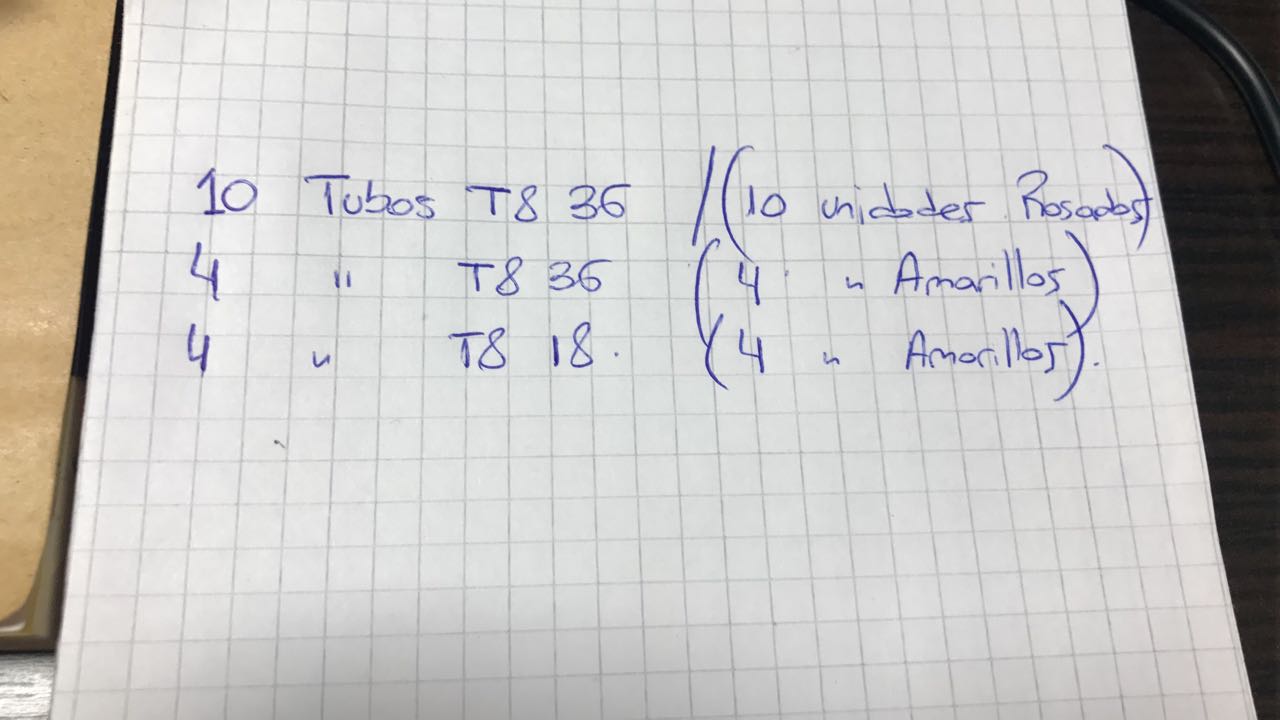 10 Tubos T8 36 / (10 unidades Rosados)
4 " T8 36 (4 " Amarillos)
4 " T8 18. (4 " Amarillos).